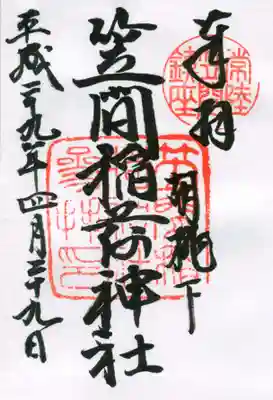 奉拝
胡桃下
笠間稲荷神社
平成二九年四月二十九日